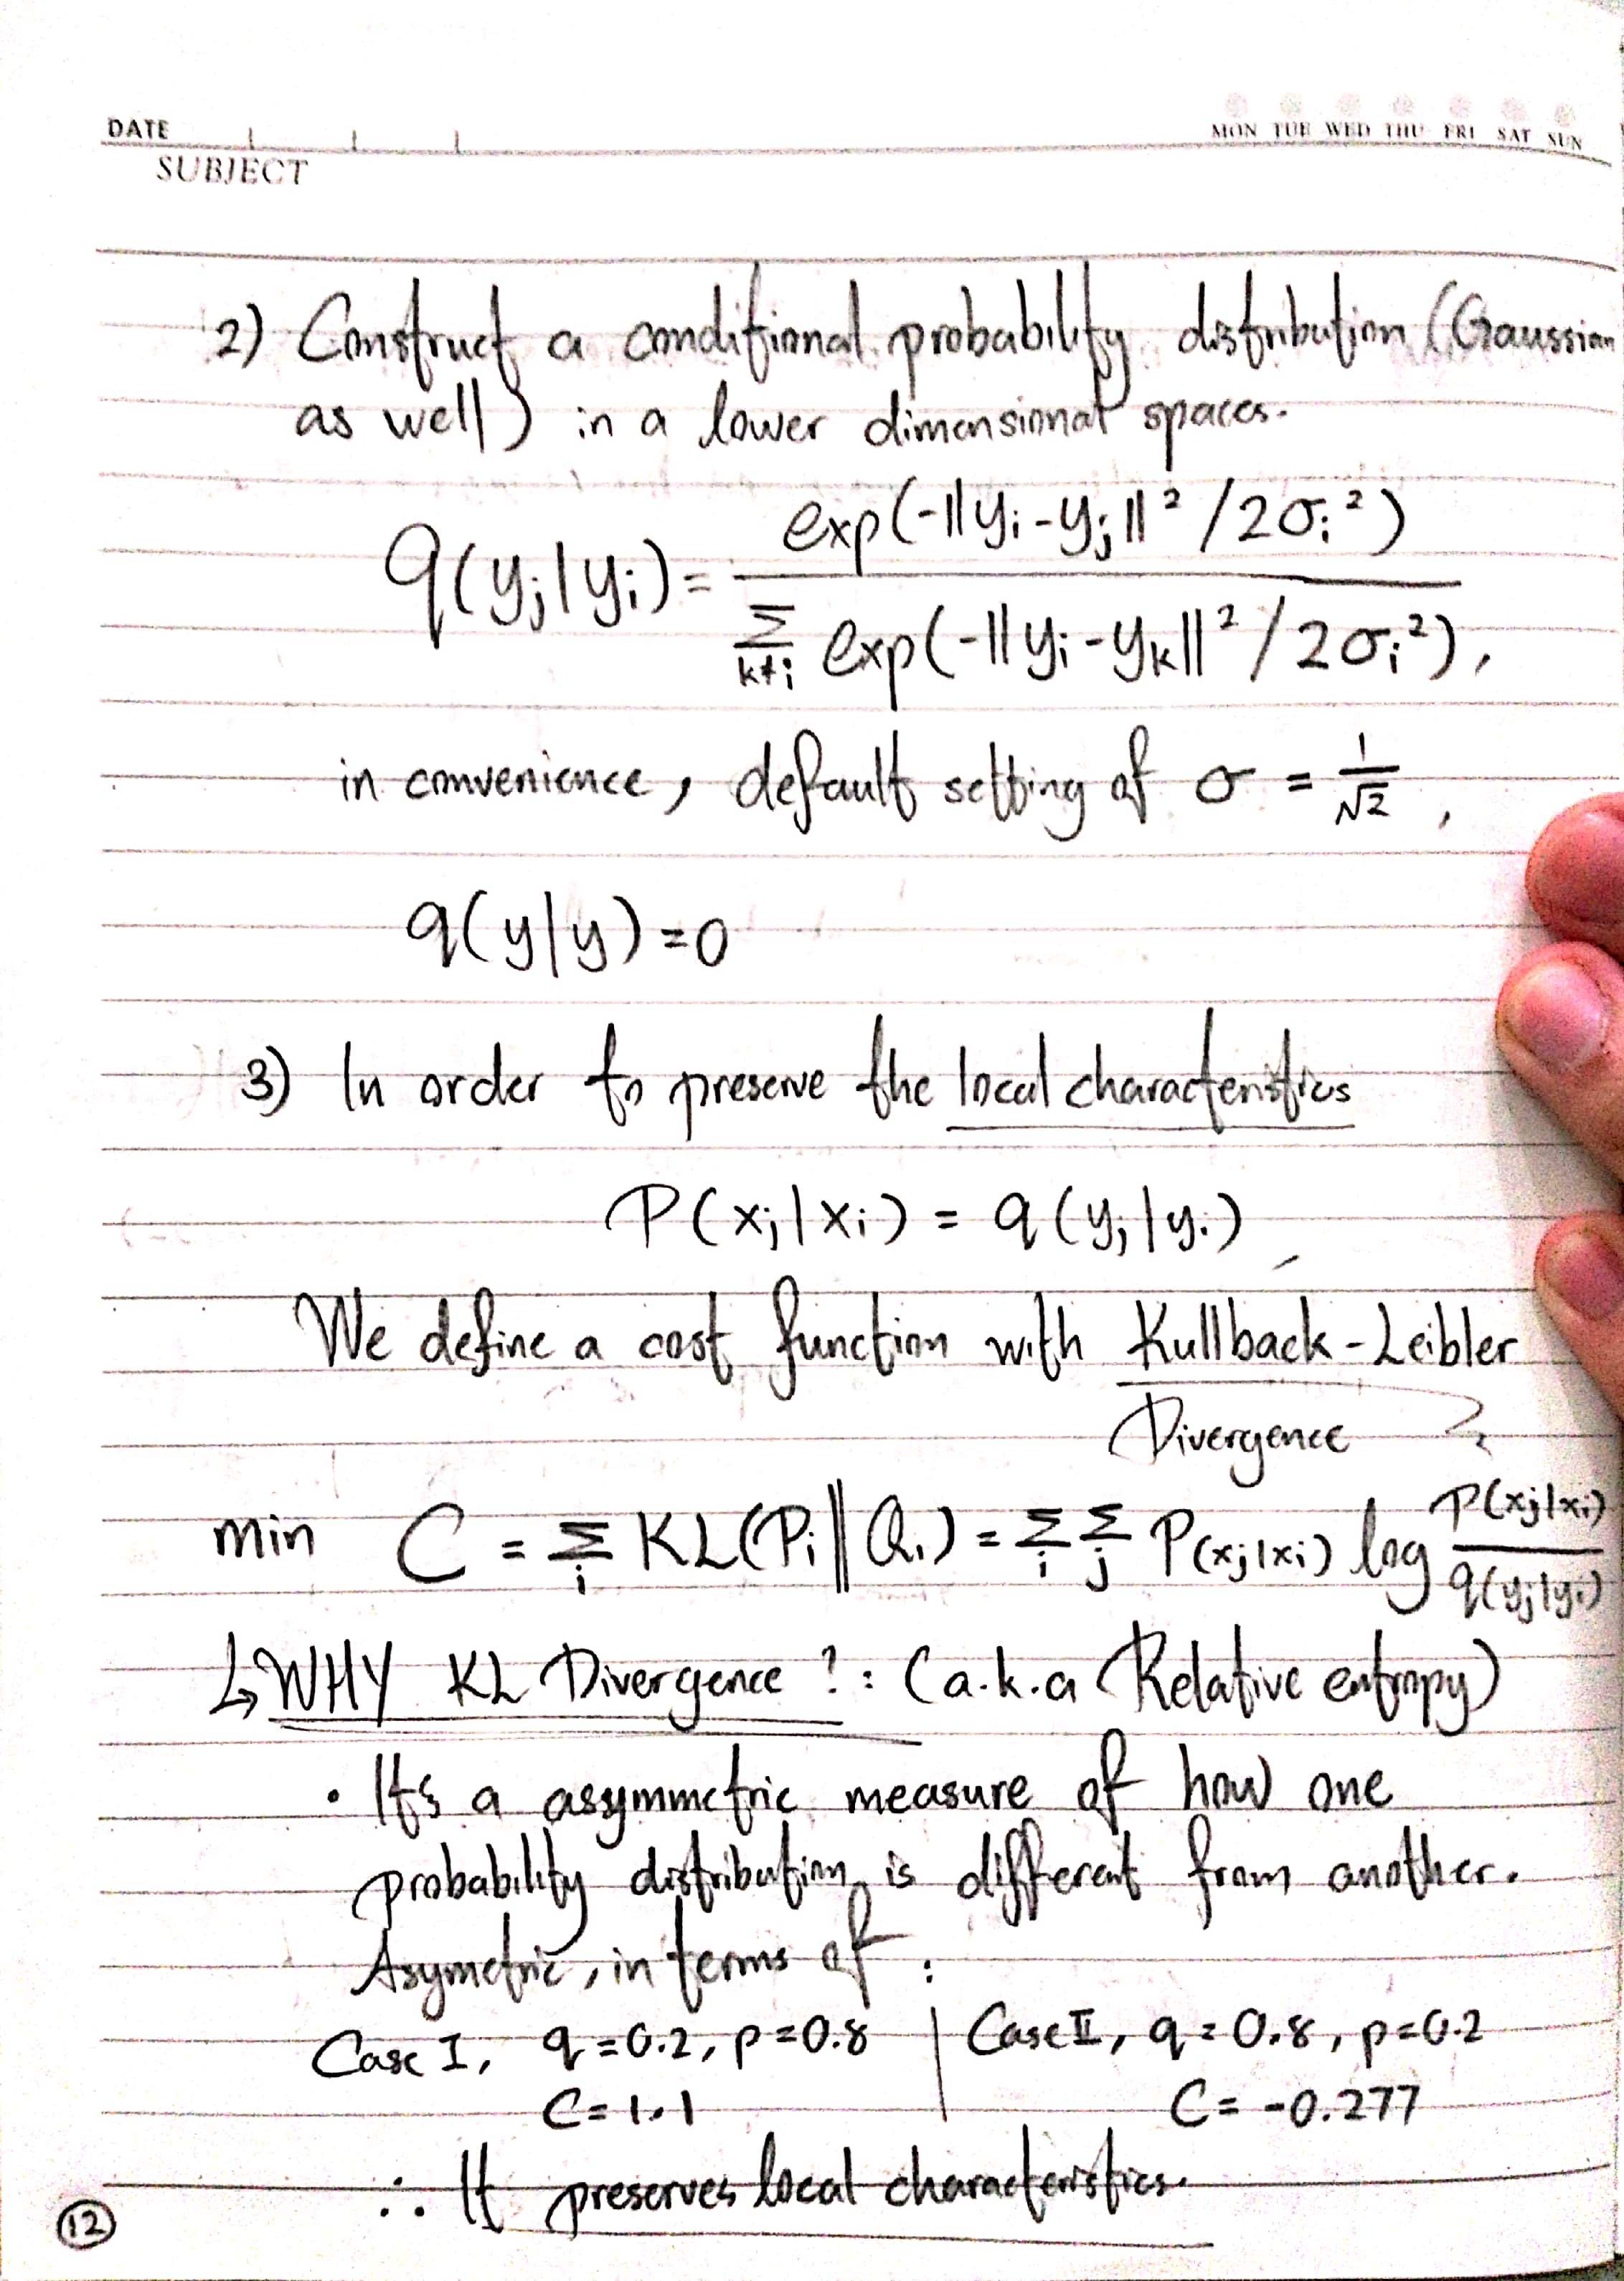 DATE
MON TUE WED THU FRI SAT SUN
SUBJECT
2) Construct a conditional probability distribution (Gaussian
as well) in a lower dimensional spaces.
q(yj|yi) = exp(-||yi-yj||² /2σi²) / Σk≠i exp(-||yi-yk||²/2σi²),
in convenience, default setting of σ = 1/√2,
q(y|y)=0
3) In order to preserve the local characteristics
P(xj|xi) = q(yj|yi)
We define a cost function with Kullback-Leibler
Divergence
min C = Σi KL(Pi||Qi) = Σi Σj P(xj|xi) log P(xj|xi)/q(yj|yi)
↳ WHY KL Divergence ?: (a.k.a Relative entropy)
• It's a assymmetric measure of how one
probability distribution is different from another.
Asymetric, in terms of :
Case I, q=0.2, p=0.8 | Case II, q=0.8, p=0.2
C=1.1 | C= -0.277
∴ It preserves local characteristics.
12